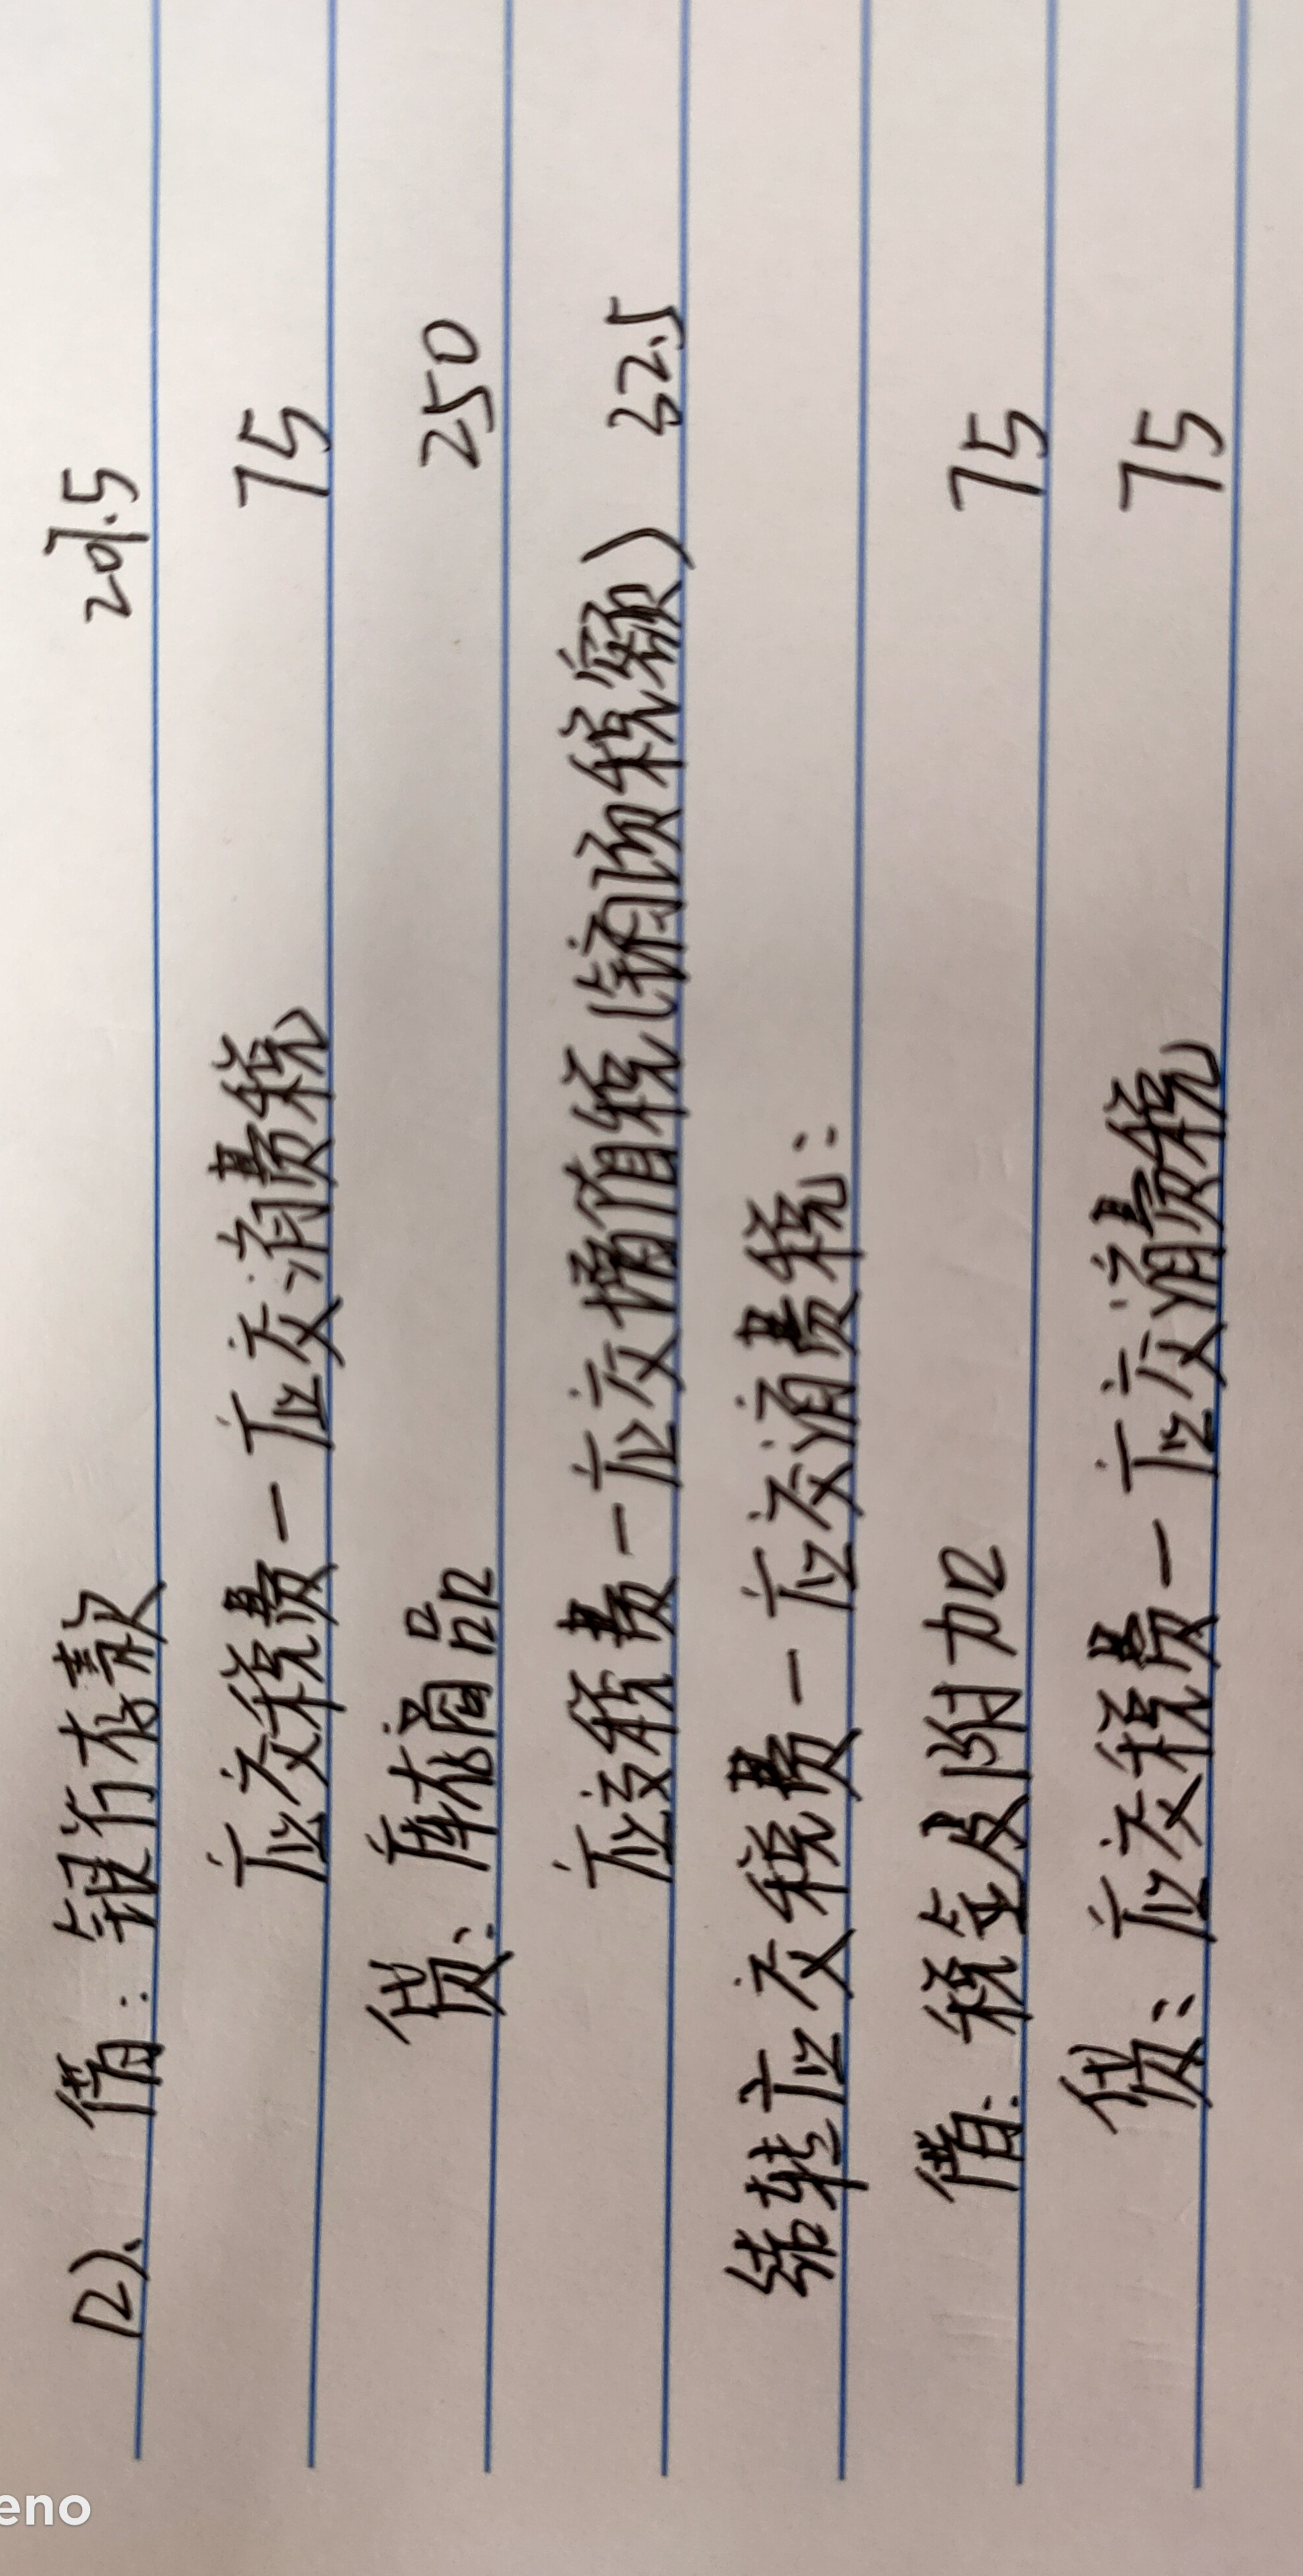 (2)、借:银行存款 207.5
应交税费一应交消费税 75
贷:库存商品 250
应交税费一应交增值税(销项税额) 32.5
结转应交税费一应交消费税:
借:税金及附加 75
贷:应交税费一应交消费税 75
eno